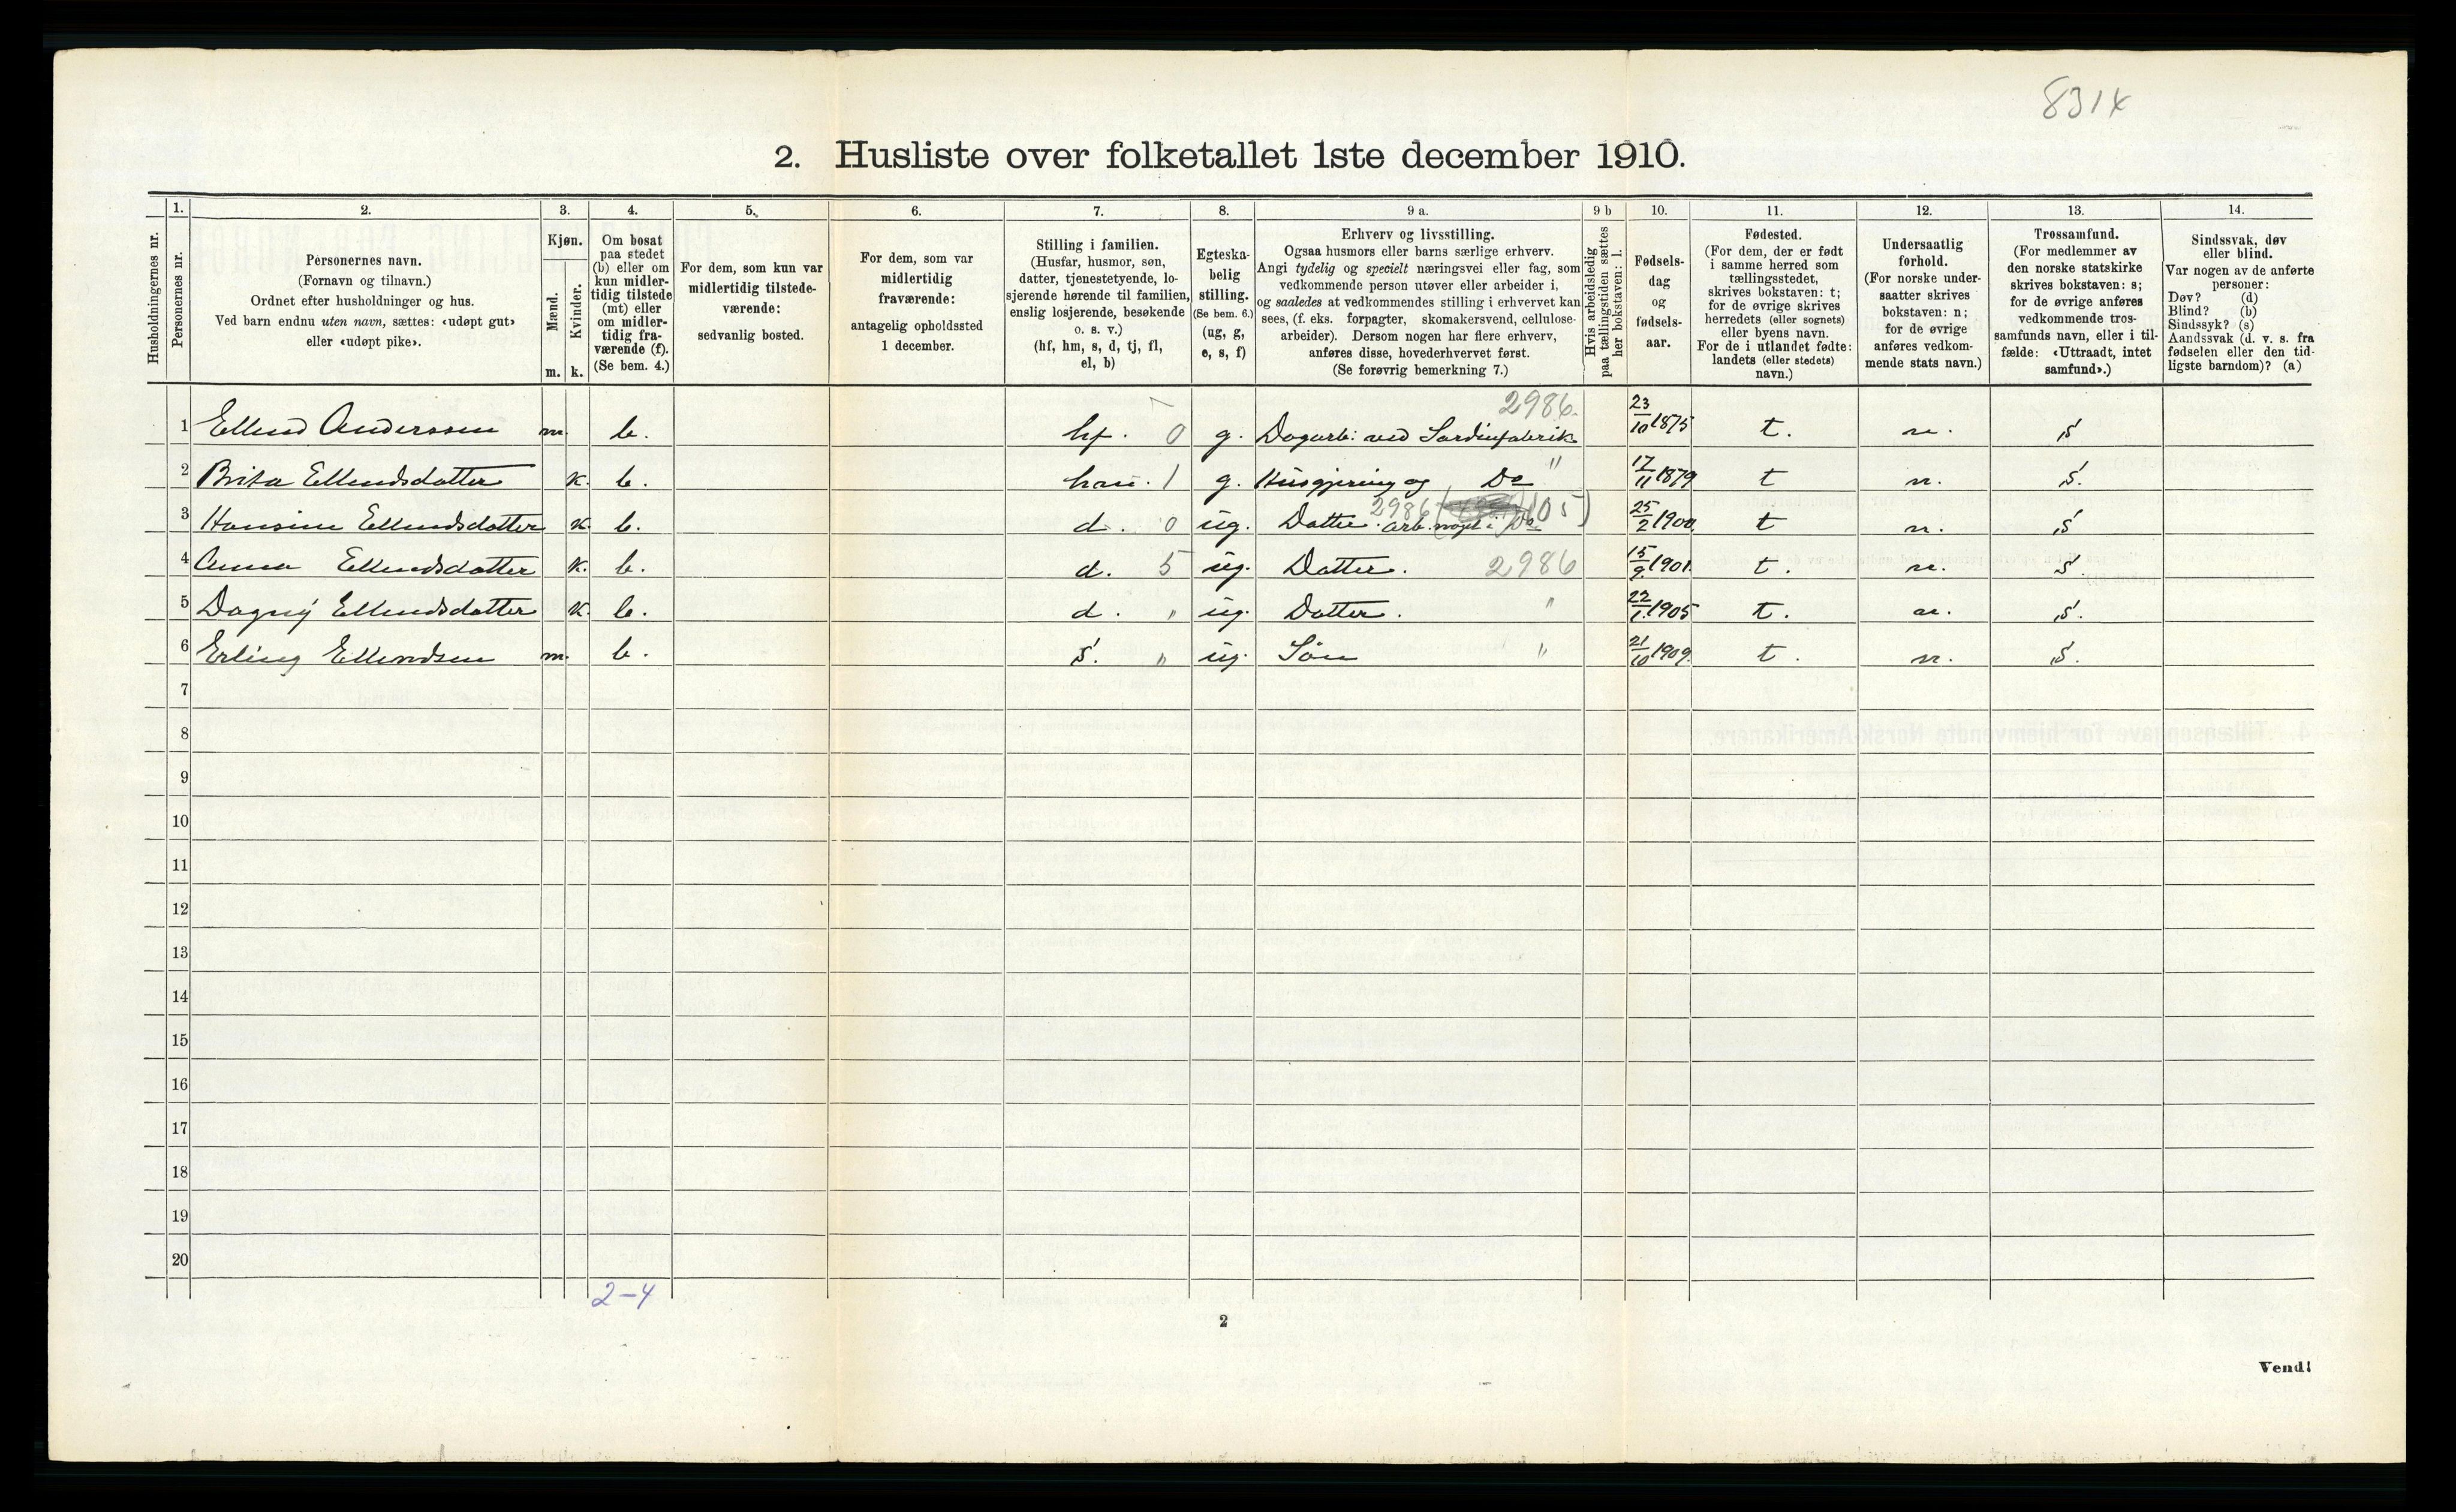 8314
2. Husliste over folketallet 1ste december 1910.
Husholdningernes nr.
1. Personernes nr.
2. Personernes navn. (Fornavn og tilnavn.) Ordnet efter husholdninger og hus. Ved barn endnu uten navn, sættes: «udøpt gut» eller «udøpt pike».
3. Kjøn. Mænd. m. Kvinder. k.
4. Om bosat paa stedet (b) eller om kun midlertidig tilstede (mt) eller om midlertidig fraværende (f). (Se bem. 4.)
5. For dem, som kun var midlertidig tilstedeværende: sedvanlig bosted.
6. For dem, som var midlertidig fraværende: antagelig opholdssted 1 december.
7. Stilling i familien. (Husfar, husmor, søn, datter, tjenestetyende, losjerende hørende til familien, enslig losjerende, besøkende o. s. v.) (hf, hm, s, d, tj, fl, el, b)
8. Egteskabelig stilling. (Se bem. 6.) (ug, g, e, s, f)
9 a. Erhverv og livsstilling. Ogsaa husmors eller barns særlige erhverv. Angi tydelig og specielt næringsvei eller fag, som vedkommende person utøver eller arbeider i, og saaledes at vedkommendes stilling i erhvervet kan sees, (f. eks. forpagter, skomakersvend, cellulosearbeider). Dersom nogen har flere erhverv, anføres disse, hovederhvervet først. (Se forøvrig bemerkning 7.)
9 b Hvis arbeidsledig paa tællingstiden sættes her bokstaven: l.
10. Fødselsdag og fødselsaar.
11. Fødested. (For dem, der er født i samme herred som tællingsstedet, skrives bokstaven: t; for de øvrige skrives herredets (eller sognets) eller byens navn. For de i utlandet fødte: landets (eller stedets) navn.)
12. Undersaatlig forhold. (For norske undersaatter skrives bokstaven: n; for de øvrige anføres vedkommende stats navn.)
13. Trossamfund. (For medlemmer av den norske statskirke skrives bokstaven: s; for de øvrige anføres vedkommende trossamfunds navn, eller i tilfælde: «Uttraadt, intet samfund».)
14. Sindssvak, døv eller blind. Var nogen av de anførte personer: Døv? (d) Blind? (b) Sindssyk? (s) Aandssvak (d. v. s. fra fødselen eller den tidligste barndom)? (a)
1 Ellend Anderssen m. b. hf. 0 g. Dagarb: ved Sardinfabrik 2986. 23/10 1875 t. n. s
2 Brita Ellendsdatter k. b. hm. 1 g. Husgjerning og Do " 17/11 1879 t n. s.
3 Hansine Ellendsdatter k. b. d. 0 ug. Datter. arb. noget i Do 2986 (05) 25/2 1900 t n. s
4 Anna Ellendsdatter k. b. d. 5 ug. Datter. 2986 15/9 1901. t. n. s
5 Dagny Ellendsdatter k. b. d. " ug. Datter. " 22/1 1905 t. n. s.
6 Erling Ellendsen m. b. s. " ug. Søn " 21/10 1909. t. n. s.
7
8
9
10
11
12
13
14
15
16
17
18
19
20
2-4
2
Vend!